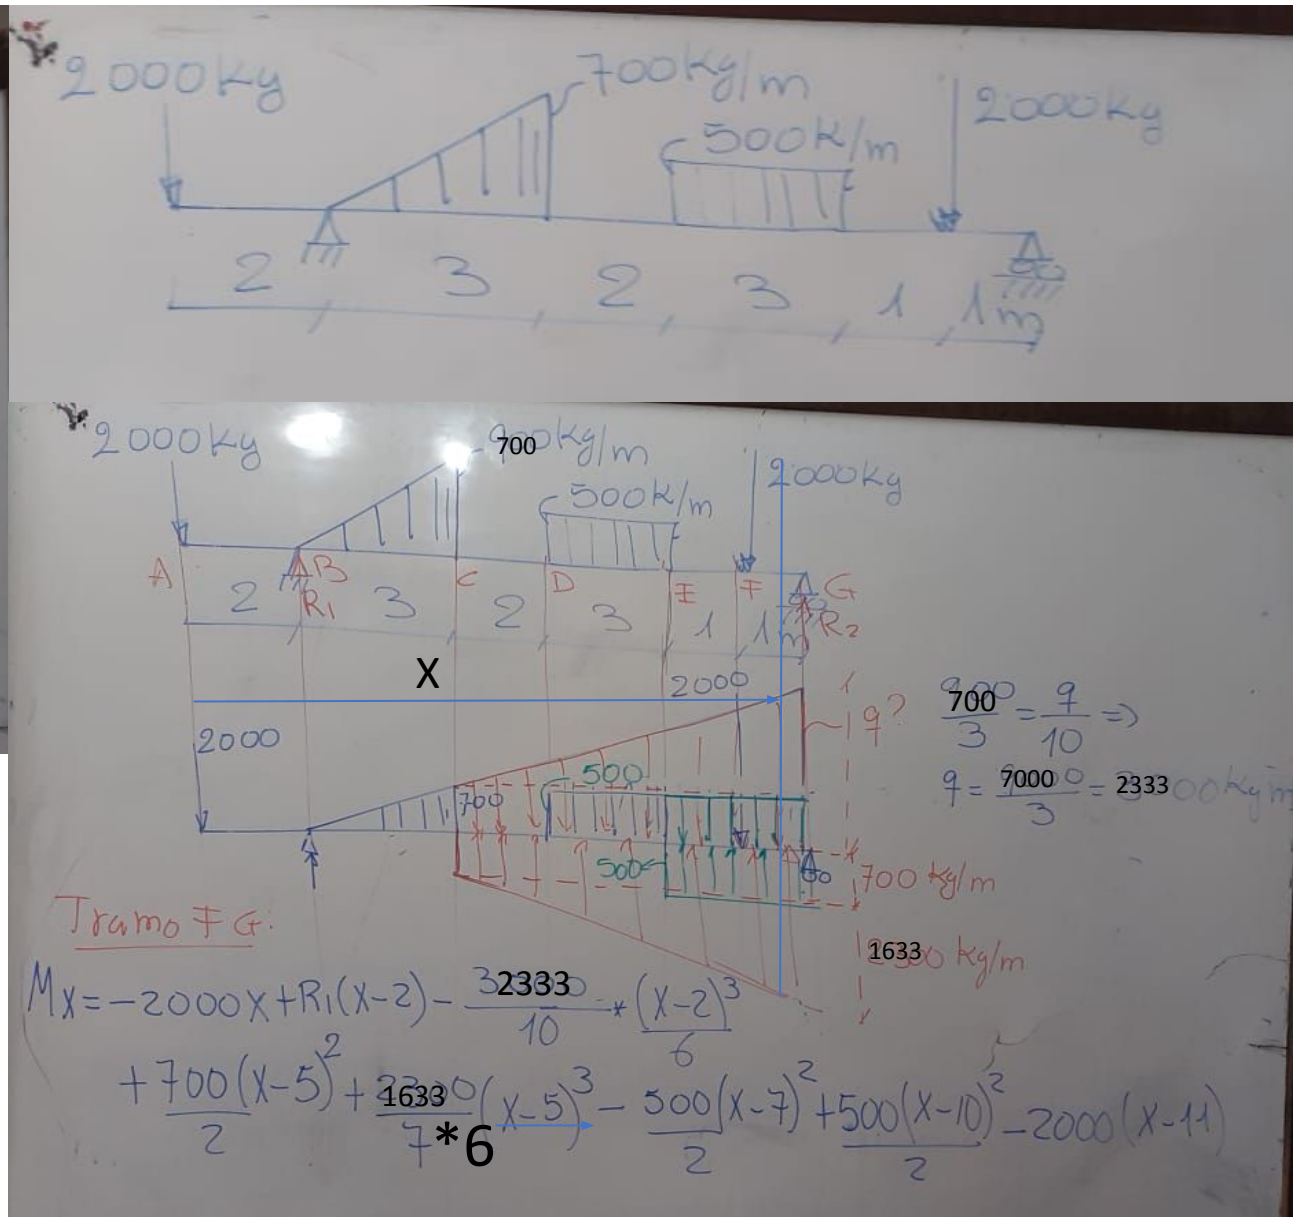 2000kg
700kg/m
500K/m
2000kg
2 3 2 3 1 1m
2000kg
700 kg/m
500K/m
2000kg
A B C D E F G
R1 R2
2 3 2 3 1 1m
X
2000
2000
q?
700/3 = q/10 =>
q = 7000/3 = 2333
500
700
500
700 kg/m
1633 kg/m
Tramo FG:
Mx = -2000x + R1(x-2) - 2333/10 * (x-2)^3/6
+ 700(x-5)^2/2 + 1633/7*6 (x-5)^3 - 500(x-7)^2/2 + 500(x-10)^2/2 - 2000(x-11)